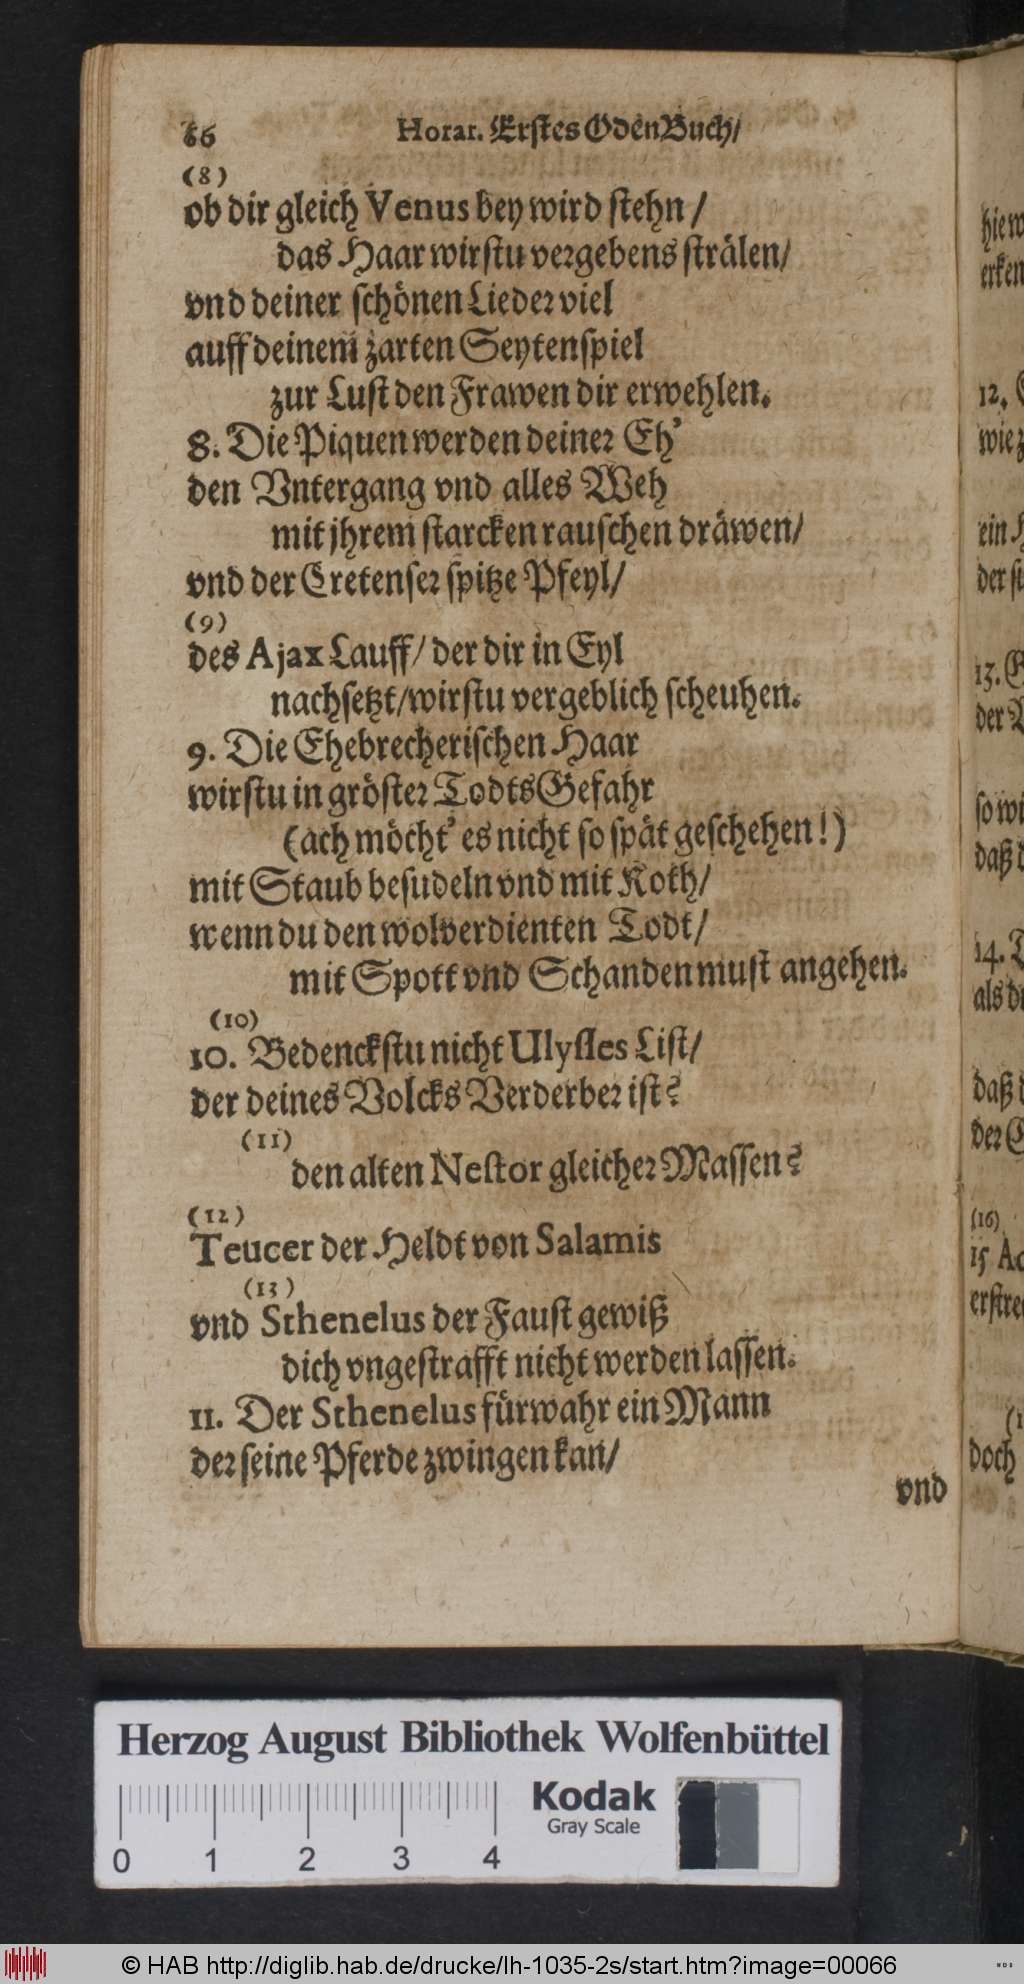 66 Horat. Erstes OdenBuch/
(8)
ob dir gleich Venus bey wird stehn/
das Haar wirstu vergebens strälen/
vnd deiner schönen Lieder viel
auff deinem zarten Seytenspiel
zur Lust den Frawen dir erwehlen.
8. Die Piquen werden deiner Eh'
den Vntergang vnd alles Weh
mit jhrem starcken rauschen dräwen/
vnd der Cretenser spitze Pfeyl/
(9)
des Ajax Lauff/ der dir in Eyl
nachsetzt/ wirstu vergeblich scheuhen.
9. Die Ehebrecherischen Haar
wirstu in gröster TodtsGefahr
(ach möcht' es nicht so spät geschehen!)
mit Staub besudeln vnd mit Koth/
wenn du den wolverdienten Todt/
mit Spott vnd Schanden must angehen.
(10)
10. Bedenckstu nicht Ulysses List/
der deines Volcks Verderber ist?
(11)
den alten Nestor gleicher Massen?
(12)
Teucer der Heldt von Salamis
(13)
vnd Sthenelus der Faust gewiß
dich vngestrafft nicht werden lassen.
11. Der Sthenelus fürwahr ein Mann
der seine Pferde zwingen kan/
vnd
hie w
erken
12.
wie z
ein H
der si
13. G
der
so wi
daß d
14.
als du
daß d
der G
(16)
15 Ac
erstre
doch
Herzog August Bibliothek Wolfenbüttel
0 1 2 3 4
Kodak
Gray Scale
© HAB http://diglib.hab.de/drucke/lh-1035-2s/start.htm?image=00066